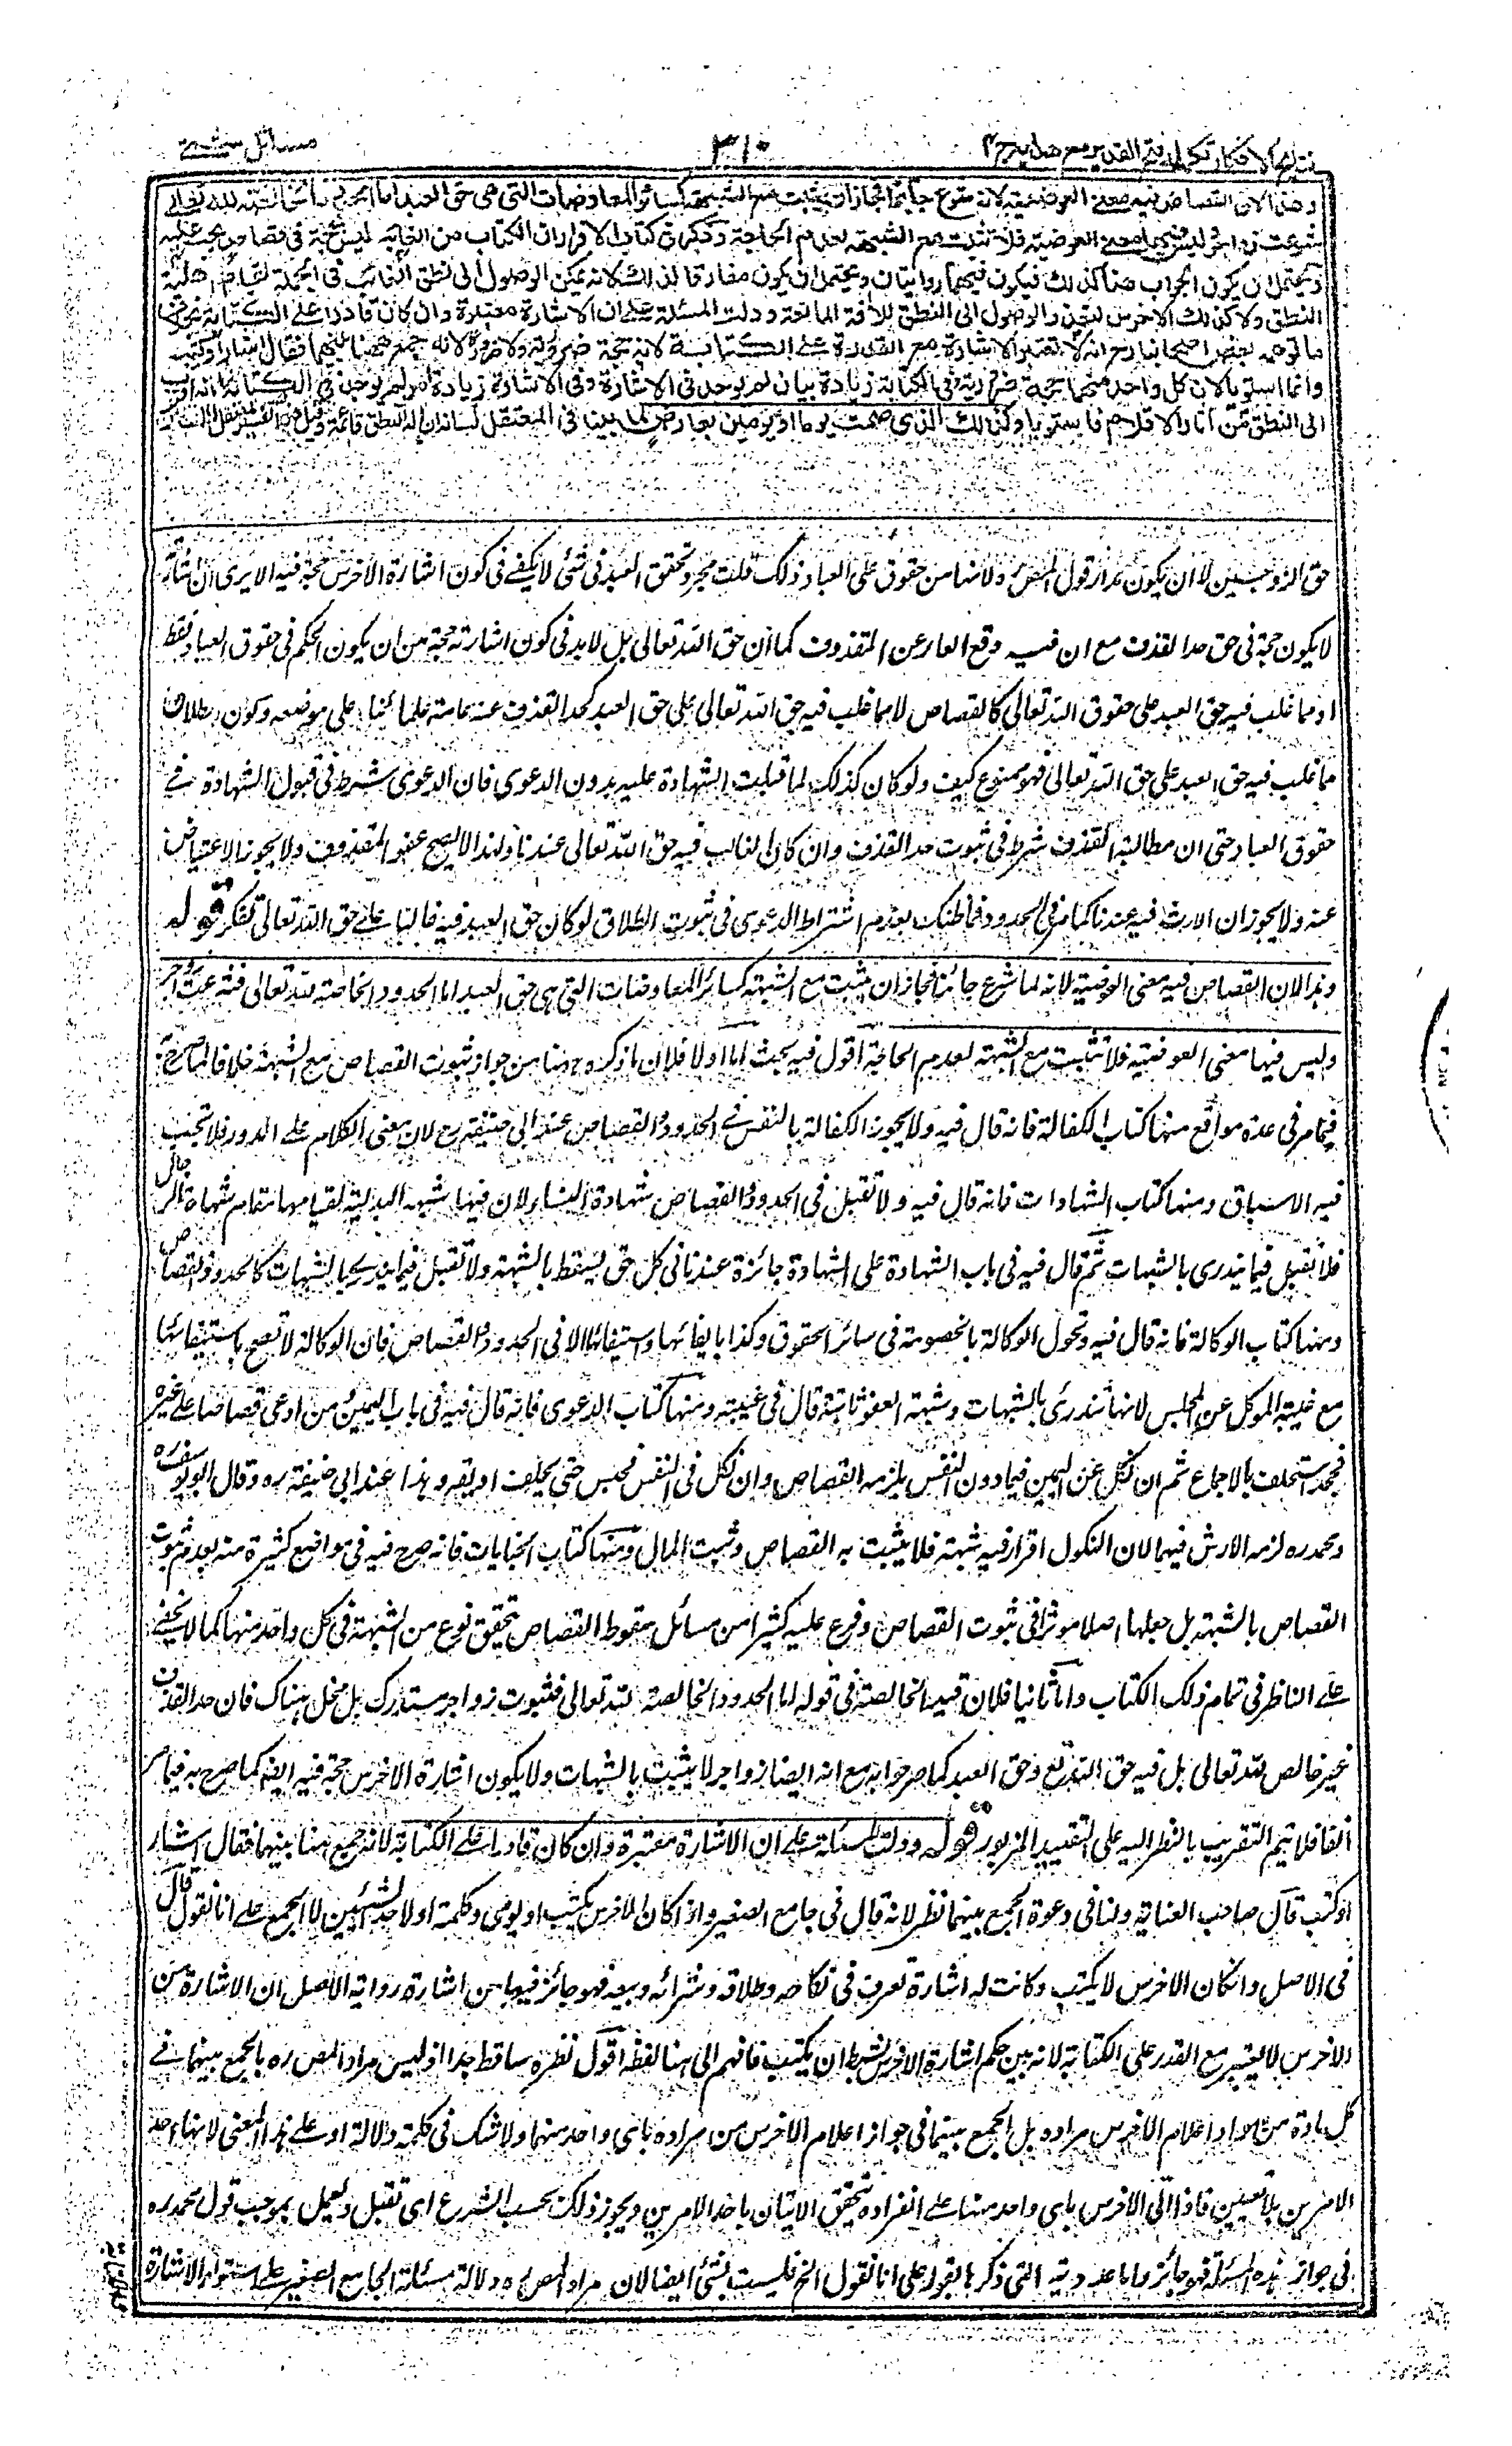 نتائج الافكار تكملة فتح القدير مع هدايه ج ٤
٣١٠
مسائل شتى
وهذا لان القصاص فيه معنى العوضية لانه شرع جابرا فجاز ان يثبت مع الشبهة كسائر المعاوضات التى هى حق العبد اما الحدود الخالصة لله تعالى
شرعت زواجر وليس فيها معنى العوضية فلا تثبت مع الشبهة لعدم الحاجة وذكر فى كتاب الاقرار ان الكتاب من الغائب ليس بحجة فى قصاص يجب عليه
ويحتمل ان يكون الجواب هنا كذلك فيكون فيهما روايتان ويحتمل ان يكون مفارقا لذلك لانه يمكن الوصول الى نطق الغائب فى الجملة لقيام اهلية
النطق ولا كذلك الاخرس لتعذر الوصول الى النطق للآفة المانعة ودلت المسئلة على ان الاشارة معتبرة وان كان قادرا على الكتابة بخلاف
ما توهمه بعض اصحابنا رح انه لا تعتبر الاشارة مع القدرة على الكتابة لانه حجة ضرورية ولا ضرورة لانه جمع ههنا بينهما فقال اشار او كتب
وانما استويا لان كل واحد منهما حجة ضرورية وفى الكتابة زيادة بيان لم يوجد فى الاشارة وفى الاشارة زيادة اثر لم يوجد فى الكتابة لما انه اقرب
الى النطق من آثار الاقلام فاستويا وكذلك الذى صمت يوما او يومين بعارض لما بينا فى المعتقل لسانه ان آلة النطق قائمة وقيل هذا تفسير لمعتقل اللسان
حق الزوجين لا ان يكون مدار قول المص ولانها من حقوق على العباد ذلك قلت مجرد تحقق العبد فى شئ لا يكفى فى كون اشارة الاخرس حجة فيه الا يرى ان اشارته
لا يكون حجة فى حق حد القذف مع ان فيه دفع العار عن المقذوف كما ان حق الله تعالى بل لا بد فى كون اشارته حجة من ان يكون الحكم فى حقوق العباد فقط
او مما غلب فيه حق العبد على حقوق الله تعالى كالقصاص لا مما غلب فيه حق الله تعالى على حق العبد كحد القذف عند عامة علمائنا على موضعه وكون الطلاق
مما غلب فيه حق العبد على حق الله تعالى فهو ممنوع كيف ولو كان كذلك لما قبلت الشهادة عليه بدون الدعوى فان الدعوى شرط فى قبول الشهادة فى
حقوق العباد حتى ان مطالبة المقذوف شرط فى ثبوت حد القذف وان كان الغالب فيه حق الله تعالى عندنا ولهذا لا يصح عفو المقذوف ولا يجوز الاعتياض
عنه ولا يجوز ان الارث فيه عندنا كما مر فى الحدود فما ظنك بعدم اشتراط الدعوى فى ثبوت الطلاق لو كان حق العبد فيه غالبا على حق الله تعالى تفكر قوله
وهذا لان القصاص فيه معنى العوضية لانه لما شرع جابرا فجاز ان يثبت مع الشبهة كسائر المعاوضات التى هى حق العبد اما الحدود الخالصة لله تعالى فشرعت زواجر
وليس فيها معنى العوضية فلا تثبت مع الشبهة لعدم الحاجة اقول فيه بحث اما اولا فلان ما ذكره ههنا من جواز ثبوت القصاص مع الشبهة خلاف لما صرح به
فيما مر فى عدة مواقع منها كتاب الكفالة فانه قال فيه ولا يجوز الكفالة بالنفس فى الحدود والقصاص عند ابى حنيفة رح لان مبنى الكلام على الدرء فلا تجب
فيه الاستيثاق ومنها كتاب الشهادات فانه قال فيه ولا تقبل فى الحدود والقصاص شهادة النساء لان فيها شبهة البدلية لقيامها مقام شهادة الرجال
فلا تقبل فيما يندرئ بالشبهات ثم قال فيه فى باب الشهادة على الشهادة جائزة عندنا فى كل حق لا يسقط بالشبهة ولا تقبل فيما يندرئ بالشبهات كالحدود والقصاص
ومنها كتاب الوكالة فانه قال فيه وتحول الوكالة بالخصومة فى سائر الحقوق وكذا بايفائها واستيفائها الا فى الحدود والقصاص فان الوكالة لا تصح باستيفائها
مع غيبة الموكل عن المجلس لانها تندرئ بالشبهات وشبهة العفو ثابتة قال فى غيبته ومنها كتاب الدعوى فانه قال فيه فى باب اليمين ومن ادعى قصاصا على غيره
فجحد استحلف بالاجماع ثم ان نكل عن اليمين فيما دون النفس يلزمه القصاص وان نكل فى النفس حبس حتى يحلف او يقر وهذا عند ابى حنيفة ره وقال ابو يوسف ره
ومحمد ره لزمه الارش فيهما لان النكول اقرار فيه شبهة فلا يثبت به القصاص وثبت المال ومنها كتاب الجنايات فانه صرح فيه فى مواضع كثيرة منه بعدم ثبوت
القصاص بالشبهة بل جعلها اصلا مؤثرا فى ثبوت القصاص وفرع عليه كثيرا من مسائل سقوط القصاص بتحقق نوع من الشبهة فى كل واحد منها كما لا يخفى
على الناظر فى تمام ذلك الكتاب واما ثانيا فلان قيد الخالصة فى قوله اما الحدود الخالصة لله تعالى فثبوت زواجر مستدرك بل مخل هناك فان حد القذف
غير خالص لله تعالى بل فيه حق الله تع وحق العبد كما صرحوا به مع انه ايضا زواجر لا يثبت بالشبهات ولا يكون اشارة الاخرس حجة فيه ايضا كما صرح به فيما مر
آنفا فلا يتم التقريب بالنظر اليه على التقييد المزبور قوله ودلت المسئلة على ان الاشارة معتبرة وان كان قادرا على الكتابة لانه جمع هنا بينهما فقال اشار
او كتب قال صاحب العناية ولنا فى دعوة الجمع بينهما نظر لانه قال فى جامع الصغير واذا كان الاخرس يكتب او يومى وكلمة او لاحد الشيئين لا الجمع على انا نقول قال
فى الاصل وان كان الاخرس لا يكتب وكانت له اشارة تعرف فى نكاحه وطلاقه وشرائه وبيعه فهو جائز فيعلم من اشارة رواية الاصل ان الاشارة من
الاخرس لا يعتبر مع القدر على الكتابة لانه بين حكم اشارة الاخرس بشرط ان يكتب فافهم الى هنا لفظه اقول نظره ساقط جدا اذ ليس مراد المص ره بالجمع بينهما فى
كل مادة من مواد اعلام الاخرس مراده بل الجمع بينهما فى جواز اعلام الاخرس من مراده باى واحد منهما ولا شك فى كلمة دلالة او على هذا المعنى لانها احد
الامرين بلا تعيين فاذا اتى الاخرس باى واحد منهما على انفراده تحقق الاتيان باحد الامرين ويجوز ذلك بحسب الشرع اى تقبل ويعمل بموجب قول محمد ره
فى جواز هذه المسئلة فهو جائز واما عدوية التى ذكرها بقوله على انا نقول الخ فليست بشئ ايضا لان مراد المص ره دلالة مسئلة الجامع الصغير على استواء الاشارة